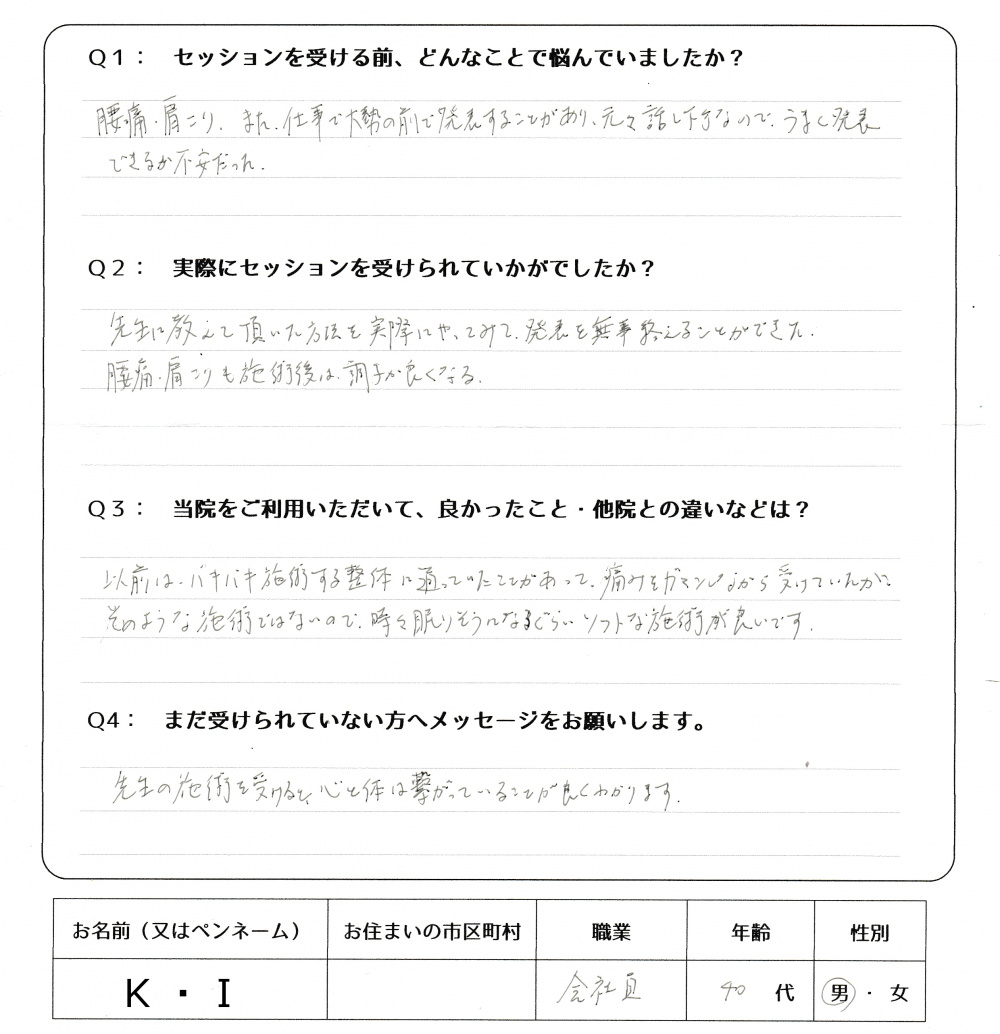 Q1： セッションを受ける前、どんなことで悩んでいましたか？
腰痛・肩こり。また、仕事で大勢の前で発表することがあり、元々話し下手なので、うまく発表
できるか不安だった。
Q2： 実際にセッションを受けられていかがでしたか？
先生に教えて頂いた方法を実際にやってみて、発表を無事終えることができた。
腰痛・肩こりも施術後は、調子が良くなる。
Q3： 当院をご利用いただいて、良かったこと・他院との違いなどは？
以前は、バキバキ施術する整体に通っていたことがあって、痛みをガマンしながら受けていたが、
そのような施術ではないので、時々眠りそうになるぐらいソフトな施術が良いです。
Q4： まだ受けられていない方へメッセージをお願いします。
先生の施術を受けると、心と体は繋がっていることが良くわかります。
お名前（又はペンネーム） お住まいの市区町村 職業 年齢 性別
K・I 会社員 40 代 男・女